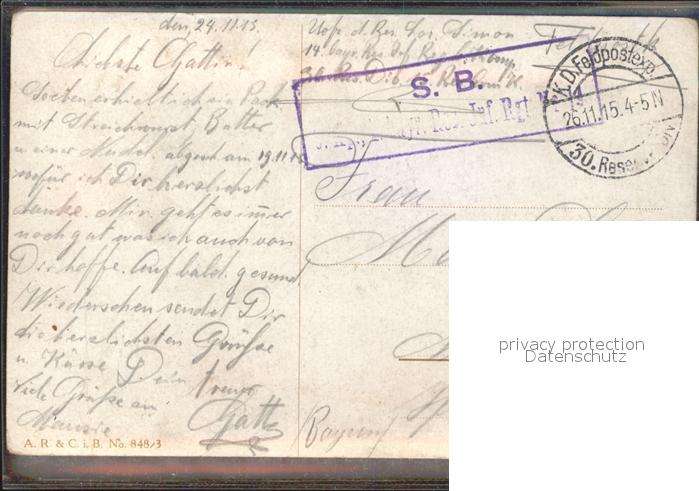 den, 24.11.15.
Liebste Gattin!
Soeben erhielt ich ein Pack
mit Streichwurst, Butter
u. einer Nudel, abgesch. am 19.11.
wofür ich Dir herzlichst
danke. Mir geht es immer
noch gut was ich auch von
Dir hoffe. Auf bald. gesund
Wiedersehen sendet Dir
die herzlichsten Grüße
u. Küsse Dein treuer
viele Grüße an Gatte
Mausie
A. R. & C. i. B. No. 848/3
Uofz. d. Res. Simon
14. bayr. Res. Inf. Reg.
30. Res. Div.
S. B.
Res. Inf. Rgt.
K.D. Feldpostexp.
26.11.15. 4-5 N
30. Reserve
Frau
Bayern
privacy protection
Datenschutz